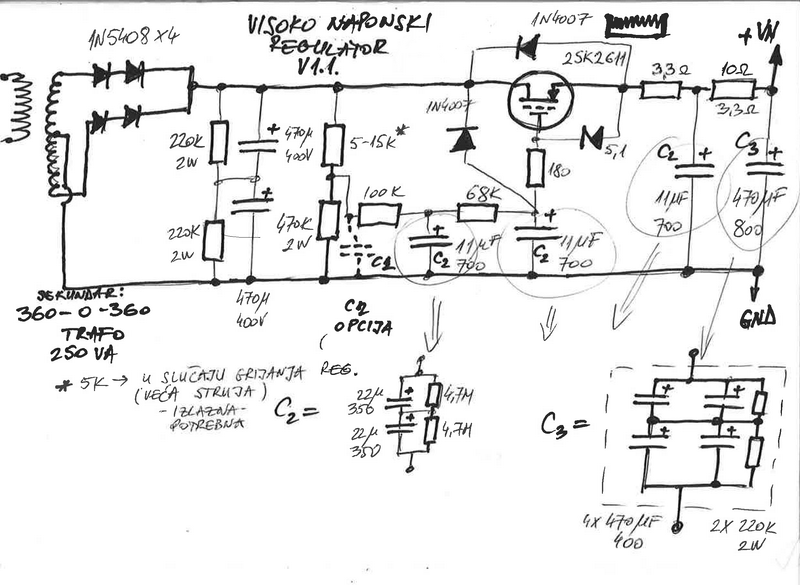 VISOKO NAPONSKI
REGULATOR
V1.1.
1N5408 X4
1N4007
2SK2611
+VN
3,3Ω
10Ω
3,3Ω
1N4007
220K
2W
470µ
400V
5-15K*
180
5,1
C2
+
11µF
700
C3
+
470µF
800
100K
68K
220K
2W
470K
2W
C1
C2
11µF
700
C2
11µF
700
470µ
400V
SEKUNDAR:
360-0-360
TRAFO
250 VA
OPCIJA
GND
* 5K → U SLUČAJU GRIJANJA REG.
(VEĆA STRUJA)
-IZLAZNA-
POTREBNA
C2 =
22µ
350
22µ
350
4,7M
4,7M
C3 =
4X 470µF
400
2X 220K
2W